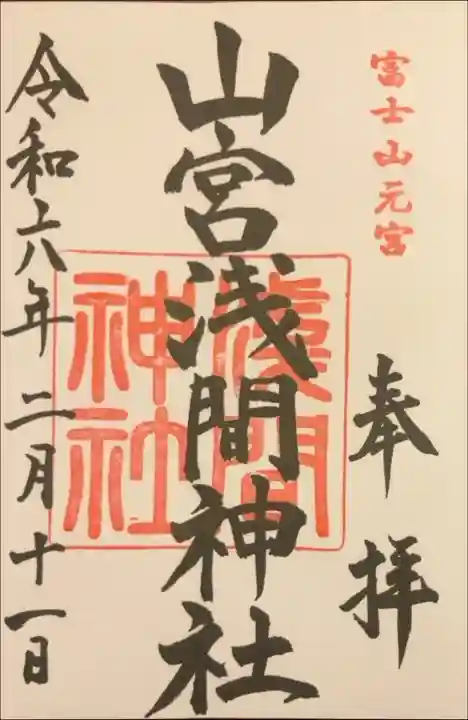 富士山元宮
奉拝
山宮浅間神社
淺間神社
令和六年二月十一日